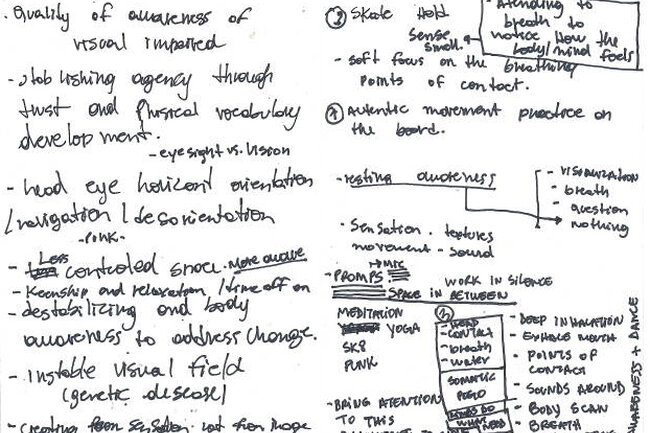 . Quality of awareness of
visual impaired
- stablishing agency through
trust and physical vocabulary
development.
- eyesight vs. vission
- head eye horizont orientation
/ navigation / desorientation
- PUNK -
- Less controled space. More aware
- Keenship and relaxation / time off on
- destabilizing and body
awareness to address change.
- Instable visual field
(genetic desease)
- Creating from sensation not from image
③ Skate Held
Sense
small.
- Atending to
breath to
notice How the
body/mind feels
- soft focus on the breathing
points of contact.
④ Autentic movement practice on
the board.
- resting awareness
- VISUALIZATION
- breath
- question
- nothing
- Sensation . textures
movement - sound
- PROMPS:
WORK IN SILENCE
SPACE IN BETWEEN
MEDITATION
YOGA
SK8
PUNK
- HEAD
- CONTACT
- breath
- water
SOMATIC
- DEEP INHALATION
- EXHALE MOUTH
- POINTS OF
CONTACT
- SOUNDS AROUND
- BODY SCAN
- BREATH
- BRING ATTENTION
TO THIS
+ DANCE